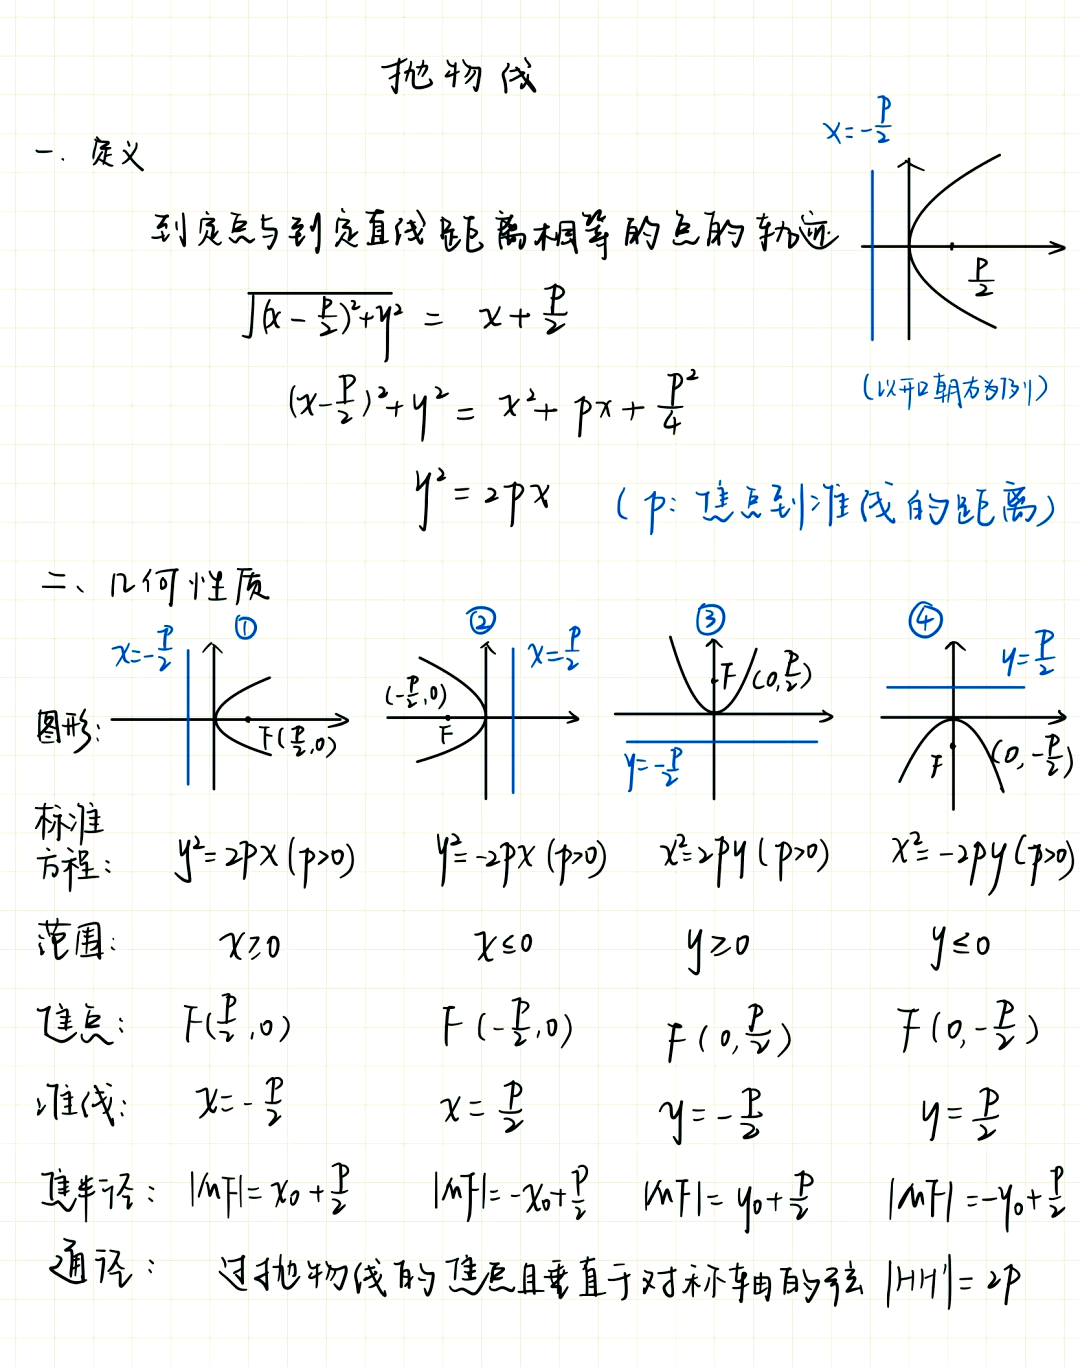 抛物线
x=-p/2
一. 定义
到定点与到定直线距离相等的点的轨迹
p/2
√((x-p/2)²+y²) = x+p/2
(以开口朝右为例)
(x-p/2)²+y² = x²+px+p²/4
y²=2px (p: 焦点到准线的距离)
二、几何性质
① ② ③ ④
x=-p/2 x=p/2 y=p/2
图形: F(p/2,0) (-p/2,0) F F(0,p/2) y=-p/2 F (0,-p/2)
标准
方程: y²=2px (p>0) y²=-2px (p>0) x²=2py (p>0) x²=-2py (p>0)
范围: x≥0 x≤0 y≥0 y≤0
焦点: F(p/2,0) F(-p/2,0) F(0,p/2) F(0,-p/2)
准线: x=-p/2 x=p/2 y=-p/2 y=p/2
焦半径: |MF|=x₀+p/2 |MF|=-x₀+p/2 |MF|=y₀+p/2 |MF|=-y₀+p/2
通径: 过抛物线的焦点且垂直于对称轴的弦 |HH'|=2p